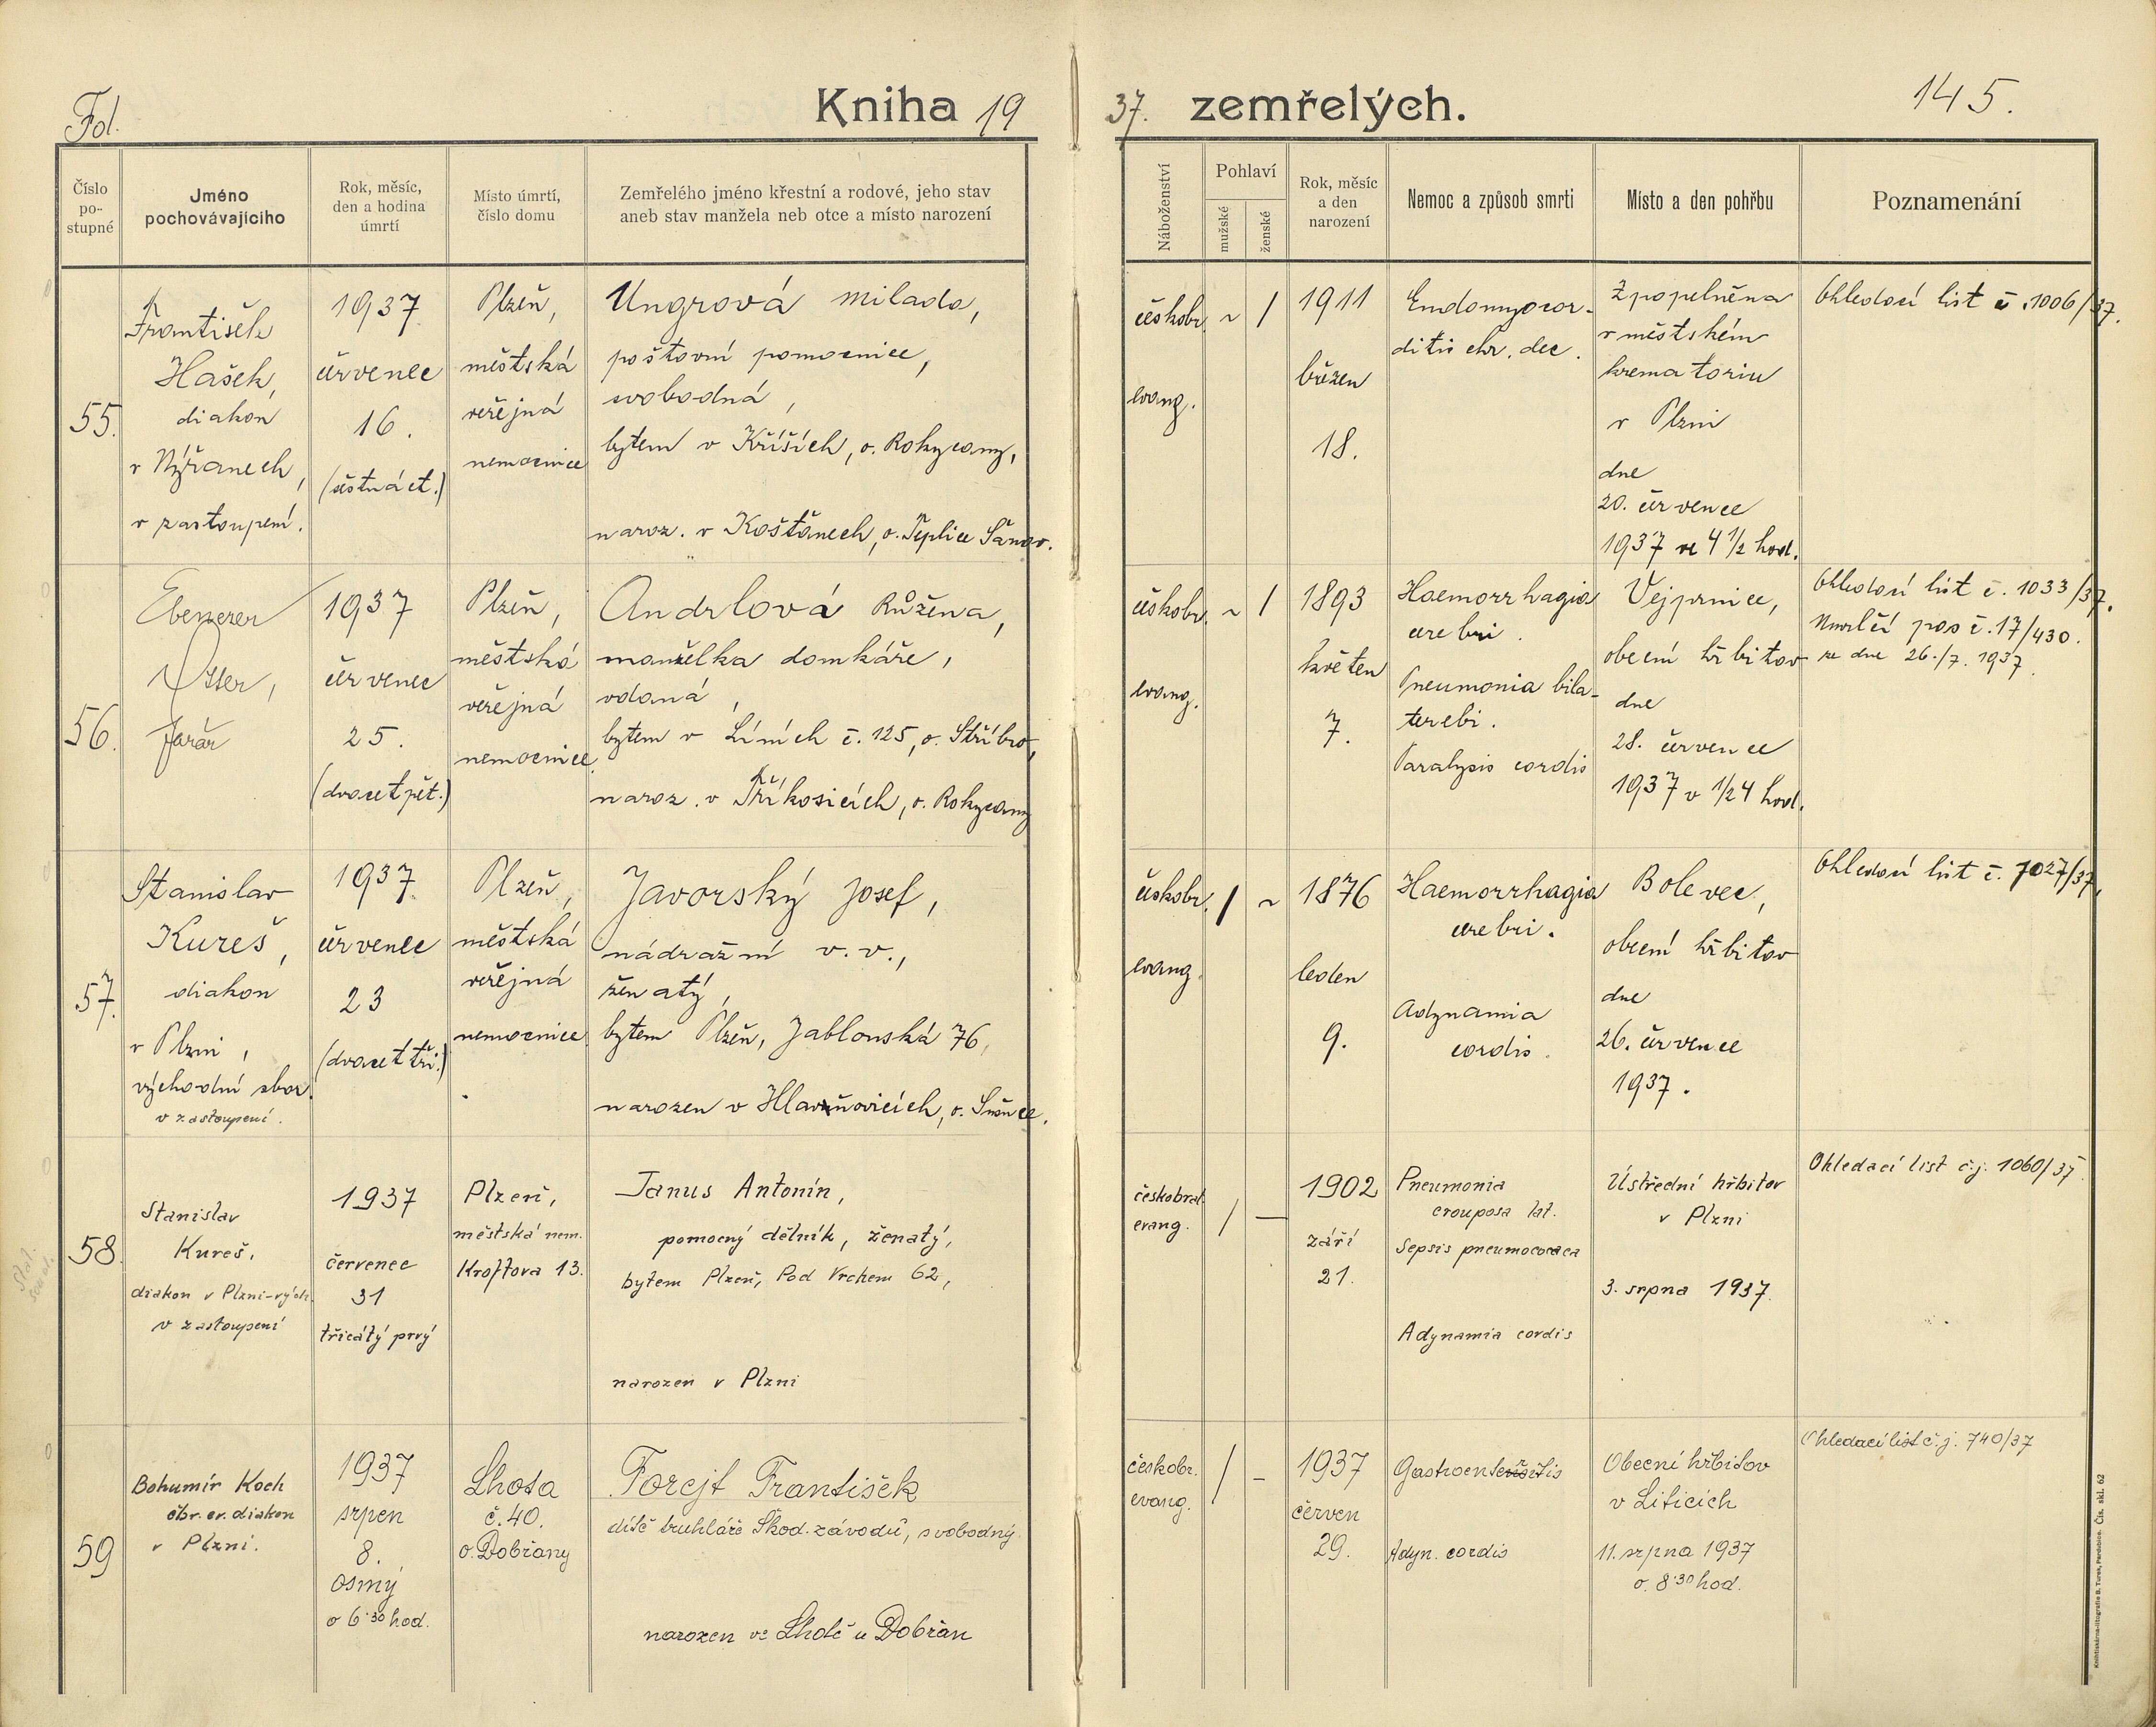 Fol.
Kniha 19
37. zemřelých.
145.
Číslo
po-
stupné
Jméno
pochovávajícího
Rok, měsíc,
den a hodina
úmrtí
Místo úmrtí,
číslo domu
Zemřelého jméno křestní a rodové, jeho stav
aneb stav manžela neb otce a místo narození
Náboženství
Pohlaví
mužské
ženské
Rok, měsíc
a den
narození
Nemoc a způsob smrti
Místo a den pohřbu
Poznamenání
55.
František
Hašek,
diakon
v Nýřanech,
v zastoupení.
1937
červenec
16.
(šestnáct.)
Plzeň,
městská
veřejná
nemocnice
Ungrová Milada,
poštovní pomocnice,
svobodná,
bytem v Kříších, o. Rokycany,
naroz. v Košťanech, o. Teplice Šanov.
českobr.
evang.
~
/
1911
březen
18.
Endomyocar-
ditis chr. dec.
Zpopelněna
v městském
krematoriu
v Plzni
dne
20. července
1937 ve 4 1/2 hod.
Ohledací list č. 1006/37.
56.
Ebenezer
Otter,
farář
1937
červenec
25.
(dvacet pět.)
Plzeň,
městská
veřejná
nemocnice
Andrlová Růžena,
manželka domkáře,
vdaná,
bytem v Líních č. 125, o. Stříbro,
naroz. v Příkosicích, o. Rokycany
českobr.
evang.
~
/
1893
květen
7.
Haemorrhagia
cerebri.
Pneumonia bila-
terebi.
Paralysis cordis
Vejprnice,
obecní hřbitov
dne
28. července
1937 v 1/2 4 hod.
Ohledací list č. 1033/37.
Umrlčí pas č. 17/430.
ze dne 26./7. 1937.
57.
Stanislav
Kureš,
diakon
v Plzni,
východní sbor.
v zastoupení.
1937
červenec
23
(dvacet tři.)
Plzeň,
městská
veřejná
nemocnice
Javorský Josef,
nádražní v. v.,
ženatý,
bytem Plzeň, Jablonská 76,
narozen v Hlavňovicích, o. Sušice.
českobr.
evang.
/
~
1876
leden
9.
Haemorrhagia
cerebri.
Adynamia
cordis.
Bolevec,
obecní hřbitov
dne
26. července
1937.
Ohledací list č. 1027/37.
58.
Stanislav
Kureš,
diakon v Plzni-vých.
v zastoupení
1937
červenec
31
třicátý prvý
Plzeň,
městská nem.
Kroftova 13.
Janus Antonín,
pomocný dělník, ženatý,
bytem Plzeň, Pod Vrchem 62,
narozen v Plzni
českobrat.
evang.
/
—
1902
září
21.
Pneumonia
crouposa lat.
Sepsis pneumococcea
Adynamia cordis
Ústřední hřbitov
v Plzni
3. srpna 1937.
Ohledací list č.j. 1060/37
59
Bohumír Koch
čbr. ev. diakon
v Plzni.
1937
srpen
8.
osmý
o 6·30 hod.
Lhota
č. 40.
o. Dobřany
Forejt František
dítě truhláře Škod. závodů, svobodný
narozen ve Lhotě u Dobřan
českobr.
evang.
/
–
1937
červen
29.
Gastroenteritis
Adyn. cordis
Obecní hřbitov
v Liticích
11. srpna 1937
o. 8·30 hod.
Ohledací list č.j. 740/37